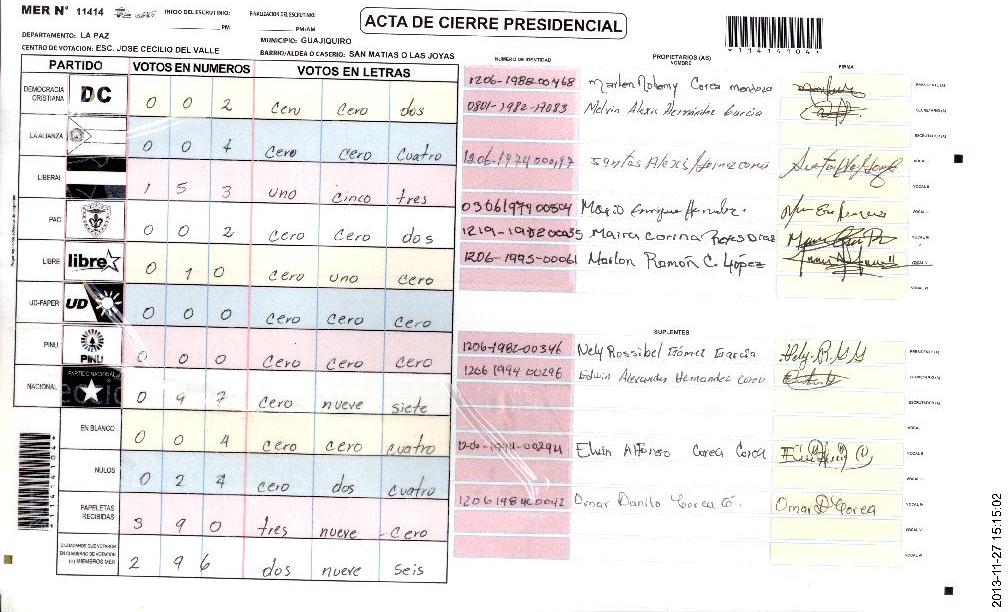 MER N° 11414
INICIO DEL ESCRUTINIO: PM
FINALIZACION DEL ESCRUTINIO: PM/AM
ACTA DE CIERRE PRESIDENCIAL
DEPARTAMENTO: LA PAZ
MUNICIPIO: GUAJIQUIRO
CENTRO DE VOTACION: ESC. JOSE CECILIO DEL VALLE
BARRIO/ALDEA O CASERIO: SAN MATIAS O LAS JOYAS
PARTIDO VOTOS EN NUMEROS VOTOS EN LETRAS
DEMOCRACIA CRISTIANA DC 0 0 2 cero cero dos
LA ALIANZA 0 0 4 cero cero cuatro
LIBERAL 1 5 3 uno cinco tres
PAC 0 0 2 cero cero dos
LIBRE libre 0 1 0 cero uno cero
UD-FAPER UD 0 0 0 cero cero cero
PINU PINU 0 0 0 cero cero cero
NACIONAL PARTIDO NACIONAL 0 9 7 cero nueve siete
EN BLANCO 0 0 4 cero cero cuatro
NULOS 0 2 4 cero dos cuatro
PAPELETAS RECIBIDAS 3 9 0 tres nueve cero
CIUDADANOS QUE VOTARON EN CUADERNO DE VOTACION (+) MIEMBROS MER 2 9 6 dos nueve seis
NUMERO DE IDENTIDAD PROPIETARIOS (AS) NOMBRE FIRMA
1206-1988-00468 Marlen Corea Mendoza PRESIDENTE(A)
0801-1982-17083 Melvin Alexis Hernández García SECRETARIO(A)
ESCRUTADOR(A)
Santos Alexis VOCAL I
VOCAL II
0306197400504 Mario Enrique
1219-1982 00035 Maira Corina Reyes Diaz
1206-1995-00061 Marlon Ramón C. López VOCAL V
VOCAL VI
SUPLENTES
1206-1982-00346 Nely Rossibel Gómez García PRESIDENTE(A)
1206 1994 00296 Edwin Alexander Hernandez Corea SECRETARIO(A)
ESCRUTADOR(A)
VOCAL I
1206-1994-00294 Elvin Alfonso Corea Corea VOCAL II
VOCAL III
1206198400042 Omar Danilo Corea C. Omar D Corea VOCAL IV
VOCAL V
VOCAL VI
2013-11-27 15:15:02